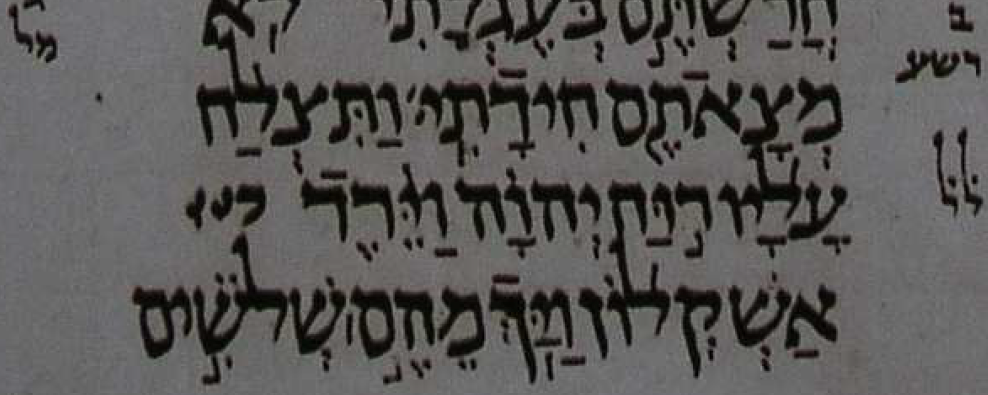 חֲרַשְׁתֶּ֖ם בְּעֶגְלָתִ֔י לֹ֥א
מְצָאתֶ֖ם חִידָתִֽי׃ וַתִּצְלַ֨ח
עָלָ֜יו ר֣וּחַ יְהוָ֗ה וַיֵּ֨רֶד
אַשְׁקְל֜וֹן וַיַּ֥ךְ מֵהֶ֣ם׀ שְׁלֹשִׁ֣ים
מל
ב